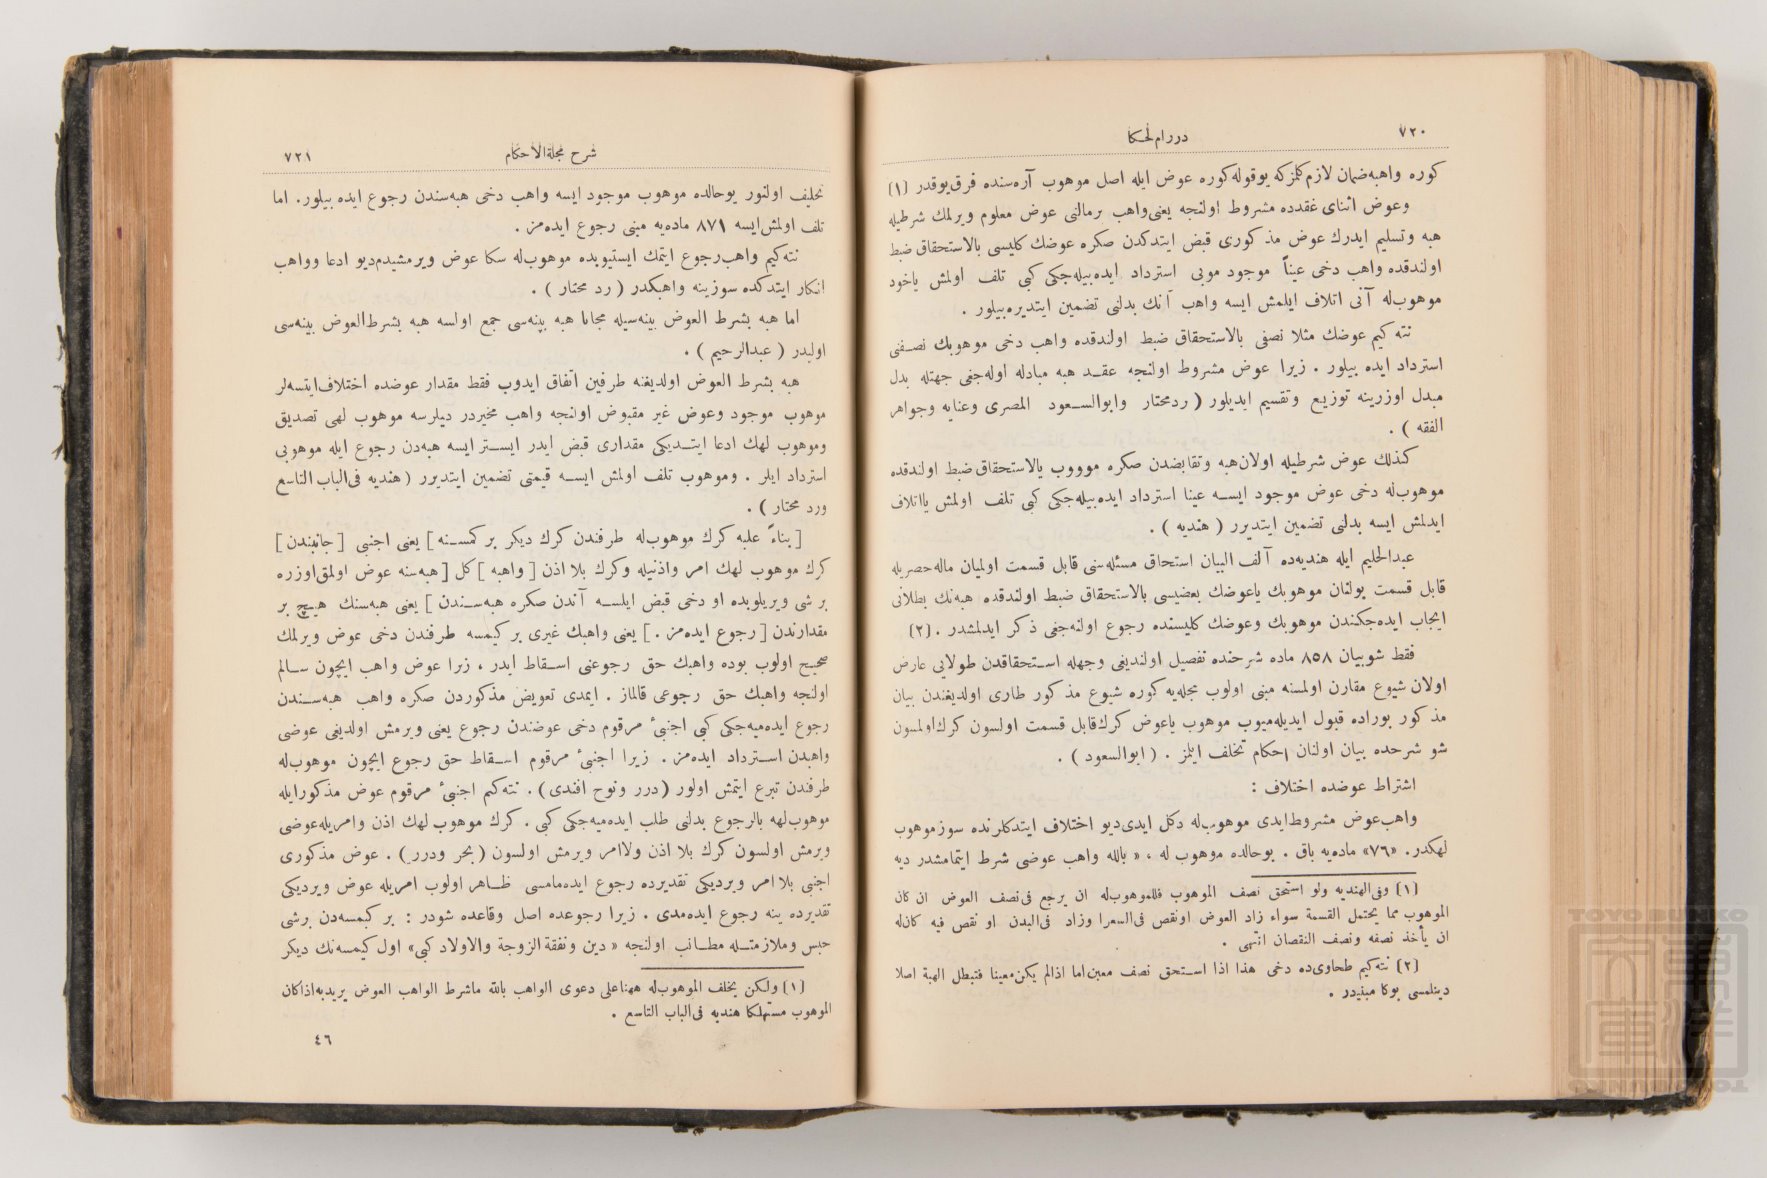 ٧٢٠
دررام لحكا
كوره واهبه ضمان لازم كلمز كه يوقوله كوره عوض ايله اصل موهوب آره سنده فرق يوقدر (١)
وعوض اثناى عقدده مشروط اولنجه يعنى واهب برمالنى عوض معلوم ويرلمك شرطيله
هبه وتسليم ايدرك عوض مذكورى قبض ايتدكدن صكره عوضك كليسى بالاستحقاق ضبط
اولندقده واهب دخى عيناً موجود موبى استرداد ايده بيله جكى كبى تلف اولمش ياخود
موهوب له آنى اتلاف ايلمش ايسه واهب آنك بدلنى تضمين ايتديره بيلور .
نته كيم عوضك مثلا نصفى بالاستحقاق ضبط اولندقده واهب دخى موهوبك نصفنى
استرداد ايده بيلور . زيرا عوض مشروط اولنجه عقد هبه مبادله اوله جغى جهتله بدل
مبدل اوزرينه توزيع وتقسيم ايديلور ( ردمحتار وابوالسعود المصرى وعنايه وجواهر
الفقه ) .
كذلك عوض شرطيله اولان هبه وتقابضدن صكره موووب بالاستحقاق ضبط اولندقده
موهوب له دخى عوض موجود ايسه عينا استرداد ايده بيله جكى كبى تلف اولمش يااتلاف
ايدلمش ايسه بدلنى تضمين ايتديرر ( هنديه ) .
عبدالحليم ايله هنديه ده آلف البيان استحاق مسئله سنى قابل قسمت اولميان ماله حصريله
قابل قسمت بولنان موهوبك ياعوضك بعضيسى بالاستحقاق ضبط اولندقده هبه نك بطلانى
ايجاب ايده جكندن موهوبك وعوضك كليسنده رجوع اولنه جغى ذكر ايدلمشدر . (٢)
فقط شوبيان ٨٥٨ ماده شرحنده تفصيل اولنديغى وجهله استحقاقدن طولايى عارض
اولان شيوع مقارن اولمسنه مبنى اولوب مجله يه كوره شيوع مذكور طارى اولديغندن بيان
مذكور بوراده قبول ايديله ميوب موهوب ياعوض كرك قابل قسمت اولسون كرك اولمسون
شو شرحده بيان اولنان احكام تخلف ايلمز . ( ابوالسعود ) .
اشتراط عوضده اختلاف :
واهب عوض مشروط ايدى موهوب له دكل ايدى ديو اختلاف ايتدكلرنده سوز موهوب
لهكدر. «٧٦» ماده يه باق . بوحالده موهوب له ، « بالله واهب عوضى شرط ايتمامشدر ديه
(١) وفى الهنديه ولو استحق نصف الموهوب فللموهوب له ان يرجع فى نصف العوض ان كان
الموهوب مما يحتمل القسمة سواء زاد العوض اونقص فى السعر اوزاد فى البدن او نقص فيه كان له
ان يأخذ نصفه ونصف النقصان انتهى .
(٢) نته كيم طحاوى ده دخى هذا اذا استحق نصف معين اما اذالم يكن معينا فتبطل الهبة اصلا
دينلمسى بوكا مبنيدر .
شرح مجلة الاحكام
٧٢١
تحليف اولنور بوحالده موهوب موجود ايسه واهب دخى هبه سندن رجوع ايده بيلور . اما
تلف اولمش ايسه ٨٧١ ماده يه مبنى رجوع ايده مز .
نته كيم واهب رجوع ايتمك ايستيوبده موهوب له سكا عوض ويرمشيدم ديو ادعا وواهب
انكار ايتدكده سوزينه واهبكدر ( رد محتار ) .
اما هبه بشرط العوض بينه سيله مجانا هبه بينه سى جمع اولسه هبه بشرط العوض بينه سى
اوليدر ( عبدالرحيم ) .
هبه بشرط العوض اولديغنه طرفين اتفاق ايدوب فقط مقدار عوضده اختلاف ايتسه لر
موهوب موجود وعوض غير مقبوض اولنجه واهب مخيردر ديلرسه موهوب لهى تصديق
وموهوب لهك ادعا ايتديكى مقدارى قبض ايدر ايستر ايسه هبه دن رجوع ايله موهوبى
استرداد ايلر . وموهوب تلف اولمش ايسه قيمتى تضمين ايتديرر ( هنديه فى الباب التاسع
ورد محتار ) .
[ بناءً عليه كرك موهوب له طرفندن كرك ديكر بر كمسنه ] يعنى اجنبى [ جانبندن ]
كرك موهوب لهك امر واذنيله وكرك بلا اذن [ واهبه ] كل [ هبه سنه عوض اولمق اوزره
بر شى ويريلوبده او دخى قبض ايلسه آندن صكره هبه سندن ] يعنى هبه سنك هيچ بر
مقدارندن [ رجوع ايده مز . ] يعنى واهبك غيرى بر كيمسه طرفندن دخى عوض ويرلمك
صحيح اولوب بوده واهبك حق رجوعنى اسقاط ايدر ، زيرا عوض واهب ايچون سالم
اولنجه واهبك حق رجوعى قالماز . ايمدى تعويض مذكوردن صكره واهب هبه سندن
رجوع ايده ميه جكى كبى اجنبىٔ مرقوم دخى عوضندن رجوع يعنى ويرمش اولديغى عوضى
واهبدن استرداد ايده مز . زيرا اجنبىٔ مرقوم اسقاط حق رجوع ايچون موهوب له
طرفندن تبرع ايتمش اولور (درر ونوح افندى) . نته كم اجنبىٔ مرقوم عوض مذكورايله
موهوب لهه بالرجوع بدلنى طلب ايده ميه جكى كبى . كرك موهوب لهك اذن وامريله عوضى
ويرمش اولسون كرك بلا اذن ولاامر ويرمش اولسون (بحر ودرر) . عوض مذكورى
اجنبى بلا امر ويرديكى تقديرده رجوع ايده مامسى ظاهر اولوب امريله عوض ويرديكى
تقديرده ينه رجوع ايده مدى . زيرا رجوعده اصل وقاعده شودر : بر كيمسه دن برشى
حبس وملازمتله مطالب اولنجه « دين ونفقة الزوجة والاولاد كبى» اول كيمسه نك ديكر
(١) ولكن يخلف الموهوب له ههنا على دعوى الواهب بالله ماشرط الواهب العوض يريدبه اذاكان
الموهوب مستهلكا هنديه فى الباب التاسع .
٤٦
TOYO BUNKO